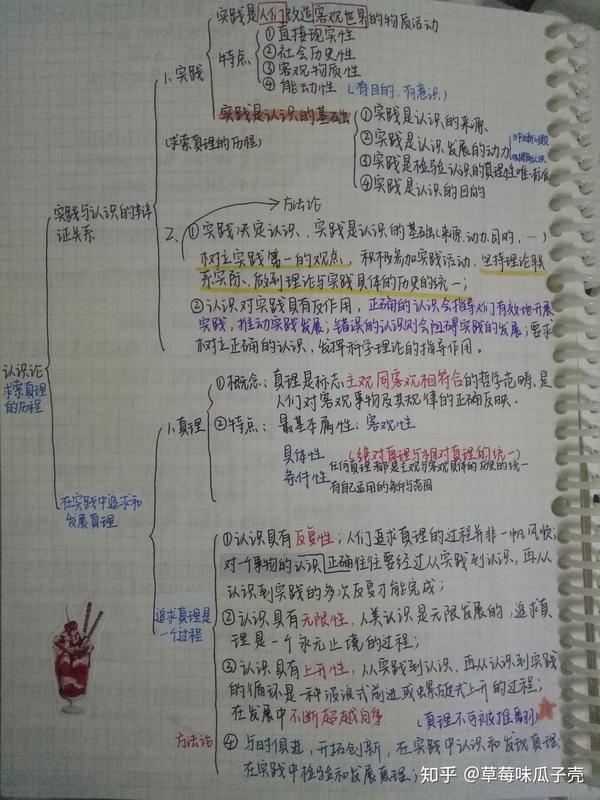 实践是人们改造客观世界的物质活动
1.实践
特点
①直接现实性
②社会历史性
③客观物质性
④能动性 (有目的,有意识)
实践是认识的基础
(求索真理的历程)
①实践是认识的来源
②实践是认识发展的动力
③实践是检验认识的真理性唯一标准
④实践是认识的目的
实践与认识的辩
证关系
方法论
2.
①实践决定认识、实践是认识的基础(来源、动力、目的,…)
树立实践第一的观点,积极参加实践活动,坚持理论联
系实际、做到理论与实践具体的历史的统一;
②认识对实践具有反作用,正确的认识会指导人们有效地开展
实践,推动实践发展;错误的认识则会阻碍实践的发展;要求
树立正确的认识,发挥科学理论的指导作用。
认识论
求索真理
的历程
1.真理
①概念:真理是标志主观同客观相符合的哲学范畴,是
人们对客观事物及其规律的正确反映。
②特点:最基本属性:客观性
具体性 (绝对真理与相对真理的统一)
任何真理都是主观与客观具体的历史的统一
条件性 有自己适用的条件与范围
在实践中追求和
发展真理
追求真理是
一个过程
①认识具有反复性;人们追求真理的过程并非一帆风顺;
对一个事物的认识正确往往要经过从实践到认识,再从
认识到实践的多次反复才能完成;
②认识具有无限性,人类认识是无限发展的,追求真
理是一个永无止境的过程;
③认识具有上升性,从实践到认识,再从认识到实践
的循环是一种波浪式前进或螺旋式上升的过程;
在发展中不断超越自身 (真理不可被推翻)
方法论
④与时俱进,开拓创新,在实践中认识和发现真理,
在实践中检验和发展真理;
知乎 @草莓味瓜子壳